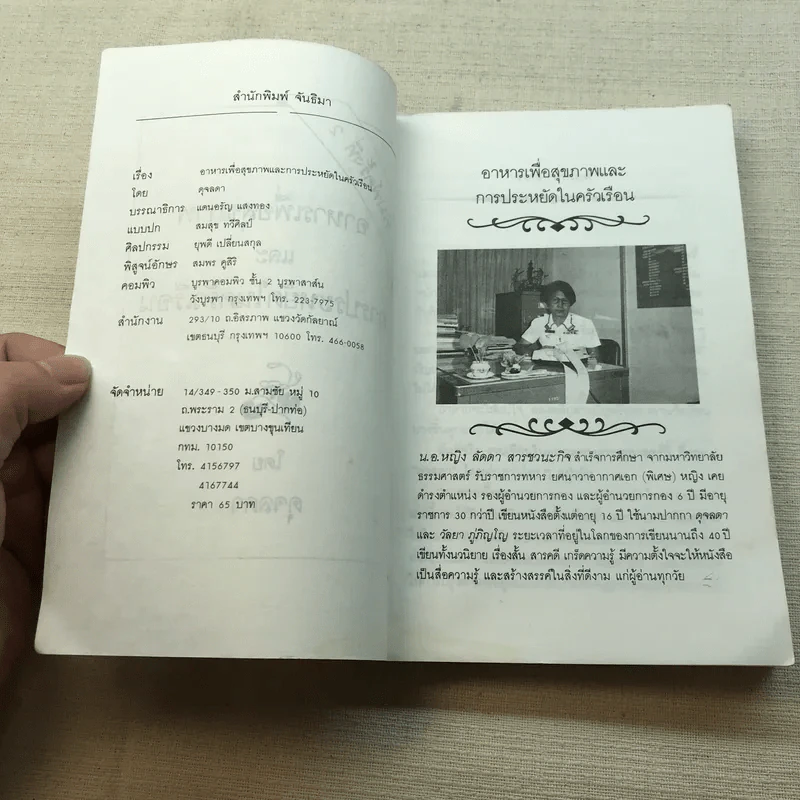 สำนักพิมพ์ จันธิมา
เรื่อง อาหารเพื่อสุขภาพและการประหยัดในครัวเรือน
โดย ดุจลดา
บรรณาธิการ แดนอรัญ แสงทอง
แบบปก สมสุข ทวีศิลป์
ศิลปกรรม ยุพดี เปลี่ยนสกุล
พิสูจน์อักษร สมพร คูสิริ
คอมพิว บูรพาคอมพิว ชั้น 2 บูรพาสาส์น
วังบูรพา กรุงเทพฯ โทร. 223-7975
สำนักงาน 293/10 ถ.อิสรภาพ แขวงวัดกัลยาณ์
เขตธนบุรี กรุงเทพฯ 10600 โทร. 466-0058
จัดจำหน่าย 14/349-350 ม.สามชัย หมู่ 10
ถ.พระราม 2 (ธนบุรี-ปากท่อ)
แขวงบางมด เขตบางขุนเทียน
กทม. 10150
โทร. 4156797
4167744
ราคา 65 บาท
อาหารเพื่อสุขภาพและ
การประหยัดในครัวเรือน
น.อ.หญิง ลัดดา สารชวนะกิจ สำเร็จการศึกษา จากมหาวิทยาลัย
ธรรมศาสตร์ รับราชการทหาร ยศนาวาอากาศเอก (พิเศษ) หญิง เคย
ดำรงตำแหน่ง รองผู้อำนวยการกอง และผู้อำนวยการกอง 6 ปี มีอายุ
ราชการ 30 กว่าปี เขียนหนังสือตั้งแต่อายุ 16 ปี ใช้นามปากกา ดุจลดา
และ วัลยา ภู่ภิญโญ ระยะเวลาที่อยู่ในโลกของการเขียนนานถึง 40 ปี
เขียนทั้งนวนิยาย เรื่องสั้น สารคดี เกร็ดความรู้ มีความตั้งใจจะให้หนังสือ
เป็นสื่อความรู้ และสร้างสรรค์ในสิ่งที่ดีงาม แก่ผู้อ่านทุกวัย